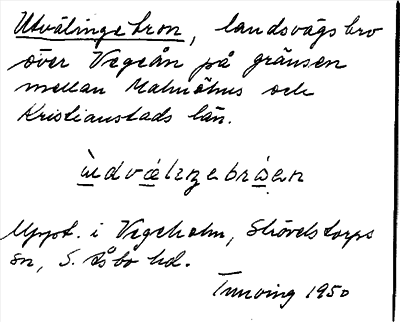 Utvälingebron, landsvägsbro
över Vegeån på gränsen
mellan Malmöhus och
Kristianstads län.
ùdvæ̀lıŋebråsen
Uppt. i Vegeholm, Strövelstorps
sn, S. Åsbo hd.
1950